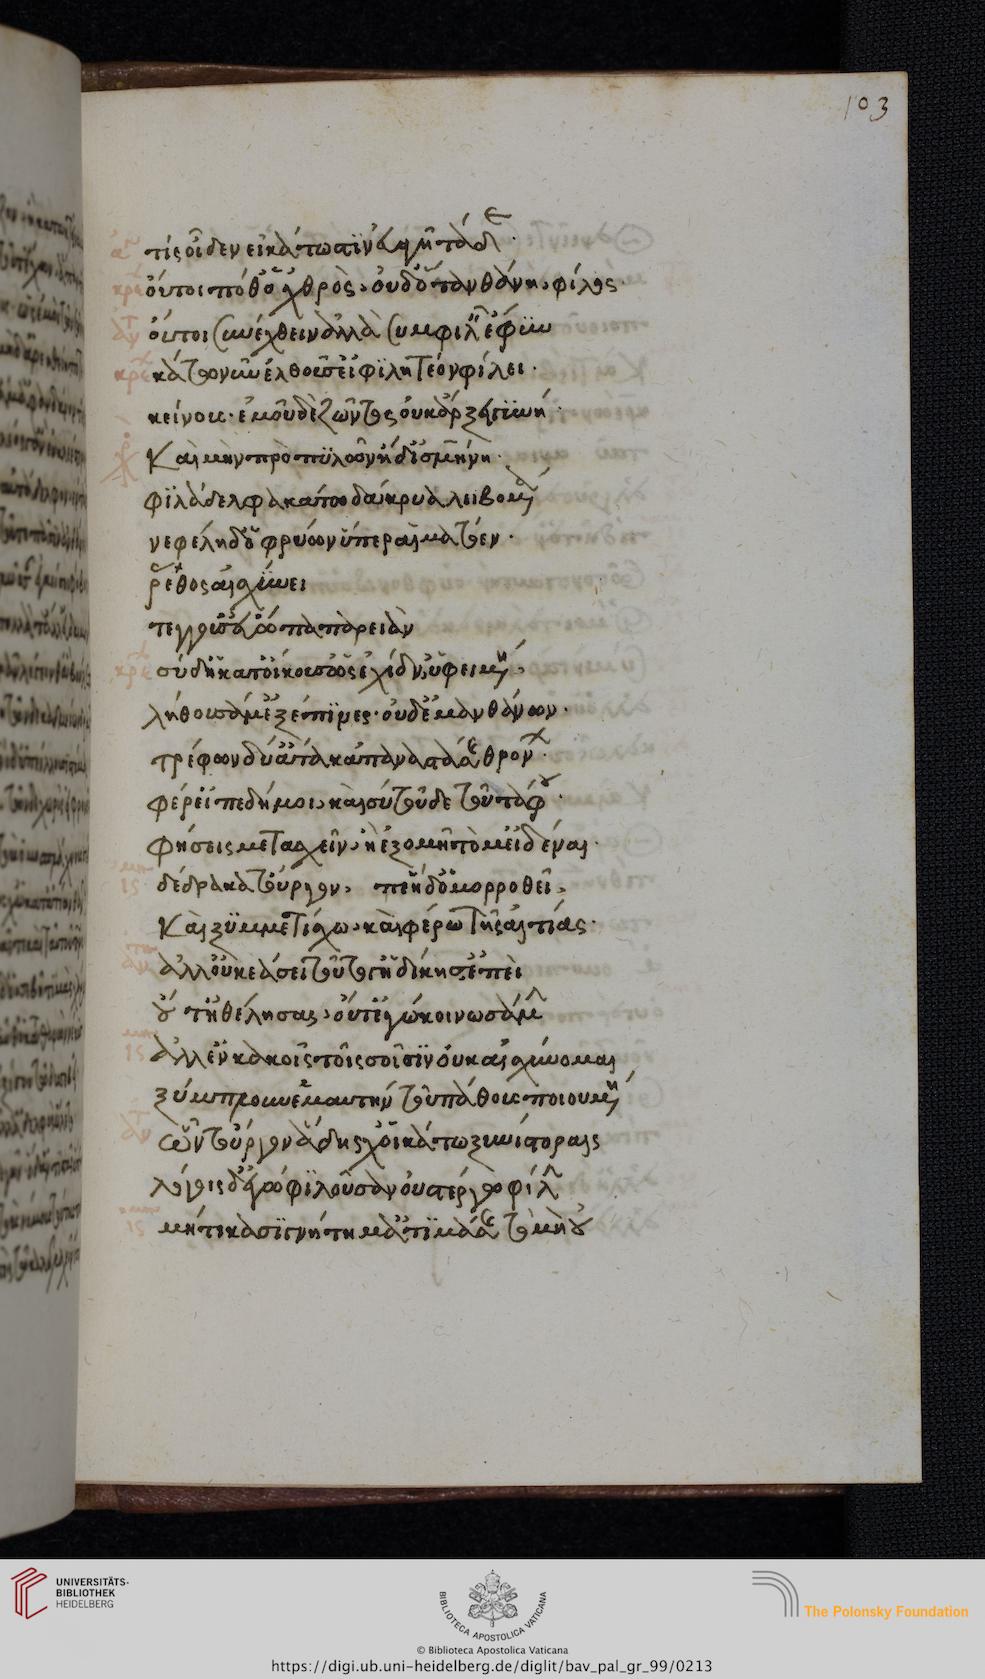 103
τίς οἶδεν εἰ κάτωστιν εὐαγῆ τάδε·
οὔτοι ποθ' οὑχθρὸς, οὐδ' ὅταν θάνῃ, φίλος·
οὔτοι συνέχθειν ἀλλὰ συμφιλεῖν ἔφυν
κάτω νυν ἐλθοῦσ' εἰ φιλητέον φίλει·
κείνους· ἐμοῦ δὲ ζῶντος οὐκ ἄρξει γυνή·
Καὶ μὴν πρὸ πυλῶν ἥδ' ἰσμήνη·
φιλάδελφα κάτω δάκρυα λειβομένη
νεφέλη δ' ὀφρύων ὕπερ αἱματόεν·
ῥέθος αἰσχύνει
τέγγουσ' εὐῶπα παρειάν
σὺ δ' ἣ κατ' οἴκους ὡς ἔχιδν' ὑφειμένη,
λήθουσά μ' ἐξέπινες· οὐδ' ἐμάνθανον·
τρέφων δύ' ἄτα κἀπαναστάσεις θρόνων·
φέρ' εἰπὲ δή μοι, καὶ σὺ τοῦδε τοῦ τάφου·
φήσεις μετασχεῖν, ἢ ἐξομῇ τὸ μὴ εἰδέναι·
δέδρακα τοὔργον, εἴπερ ἥδ' ὁμορροθεῖ,
Καὶ ξυμμετίσχω, καὶ φέρω τῆς αἰτίας·
ἀλλ' οὐκ ἐάσει τοῦτό γ' ἡ δίκη σ' ἐπεὶ
οὔτ' ἠθέλησας, οὔτ' ἐγὼ κοινωσάμην
ἀλλ' ἐν κακοῖς τοῖς σοῖσιν οὐκ αἰσχύνομαι
ξύμπλουν ἐμαυτὴν τοῦ πάθους ποιουμένη
ὧν τοὔργον ἅδης χοἱ κάτω ξυνίστορες
λόγοις δ' ἐγὼ φιλοῦσαν οὐ στέργω φίλην
μήτοι κασιγνήτη μ' ἀτιμάσῃς τὸ μὴ οὐ
UNIVERSITÄTS-
BIBLIOTHEK
HEIDELBERG
BIBLIOTECA APOSTOLICA VATICANA
The Polonsky Foundation
© Biblioteca Apostolica Vaticana
https://digi.ub.uni-heidelberg.de/diglit/bav_pal_gr_99/0213